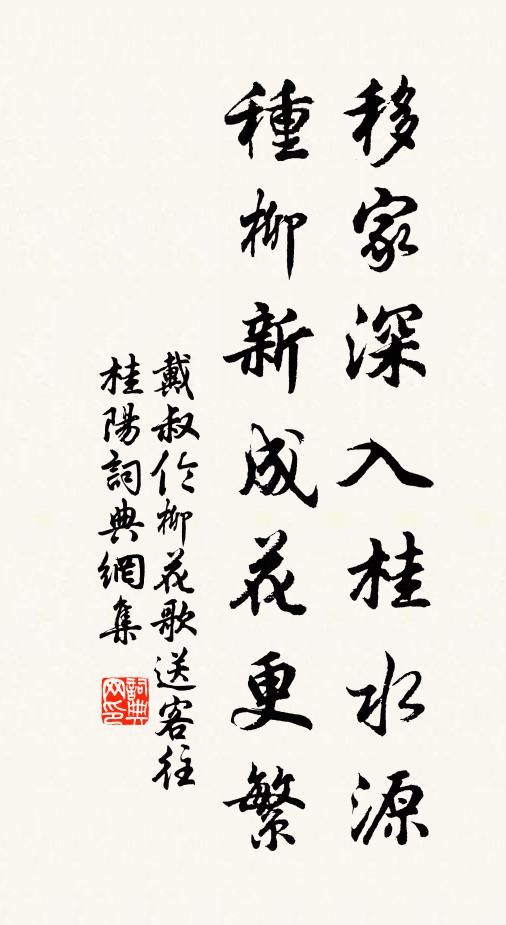 移家深入桂水源
種柳新成花更繁
戴叔伦柳花歌送客往
桂陽詞典網集
詞典
网印